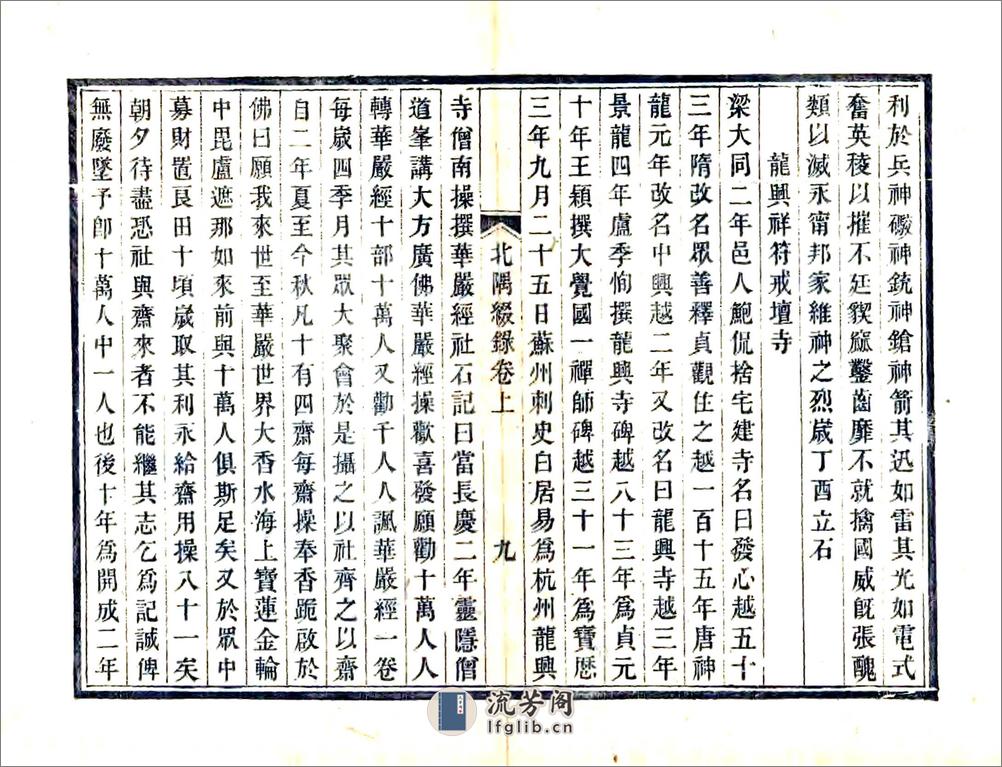 利於兵神礮神銃神鎗神箭其迅如雷其光如電式
奮英稜以摧不廷貙窳鑿齒靡不就擒國威旣張醜
類以滅永甯邦家維神之烈歲丁酉立石
龍興祥符戒壇寺
梁大同二年邑人鮑侃捨宅建寺名曰發心越五十
三年隋改名眾善釋貞觀住之越一百十五年唐神
龍元年改名中興越二年又改名曰龍興寺越三年
景龍四年盧季恂撰龍興寺碑越八十三年爲貞元
十年王穎撰大覺國一禪師碑越三十一年爲寶歷
三年九月二十五日蘇州刺史白居易爲杭州龍興
北隅綴錄卷上
九
寺僧南操撰華嚴經社石記曰當長慶二年靈隱僧
道峯講大方廣佛華嚴經操歡喜發願勸十萬人人
轉華嚴經十部十萬人又勸千人人諷華嚴經一卷
每歲四季月其眾大聚會於是攝之以社齊之以齋
自二年夏至今秋凡十有四齋每齋操奉香跪啟於
佛曰願我來世至華嚴世界大香水海上寶蓮金輪
中毘盧遮那如來前與十萬人俱斯足矣又於眾中
募財置良田十頃歲取其利永給齋用操八十一矣
朝夕待盡恐社與齋來者不能繼其志乞爲記誠俾
無廢墜予卽十萬人中一人也後十年爲開成二年
流芳阁
lfglib.cn